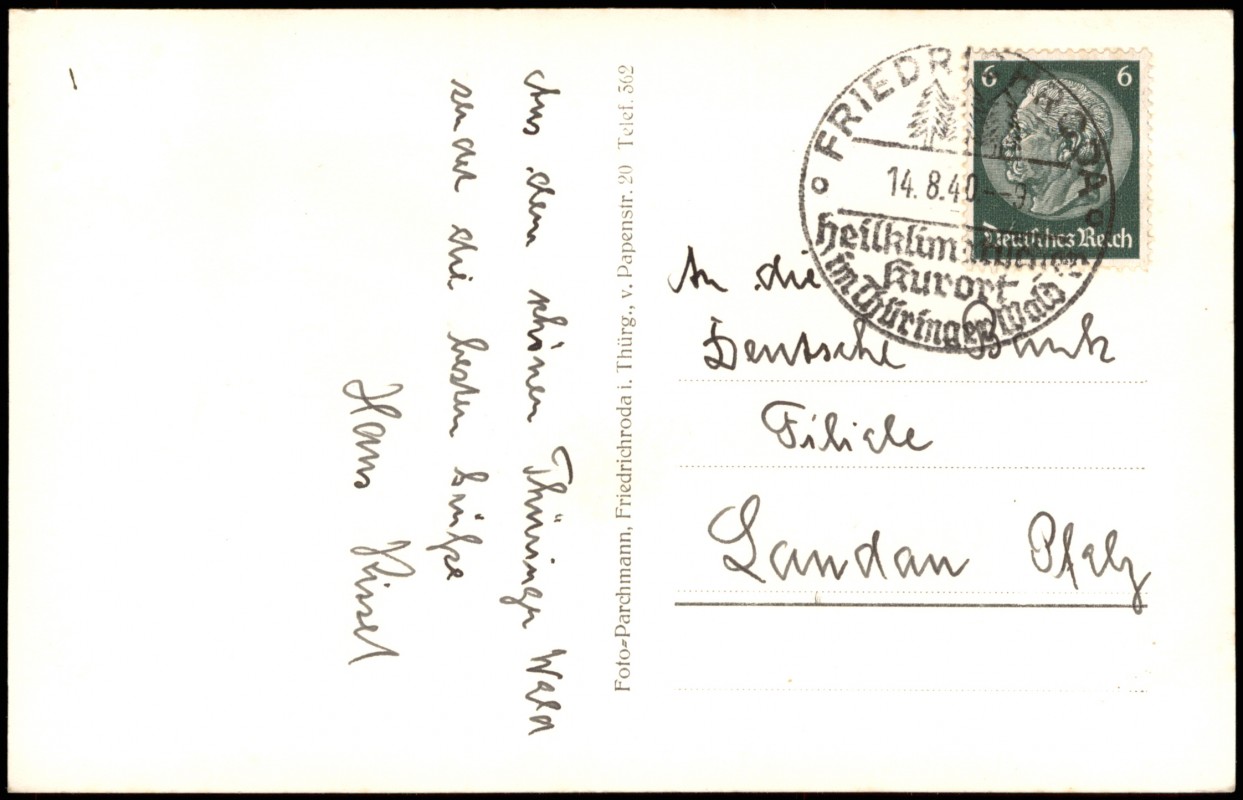 Aus dem schönen Thüringer Wald
sendet die besten Grüße
Hans Kissel
Foto-Parchmann, Friedrichroda i. Thürg., v. Papenstr. 20 Telef. 362
FRIEDRICHRODA
14.8.40--9
heilklimatischer
Kurort
im Thüringer Wald
6 6
Deutsches Reich
An die
Deutsche Bank
Filiale
Landau Pfalz